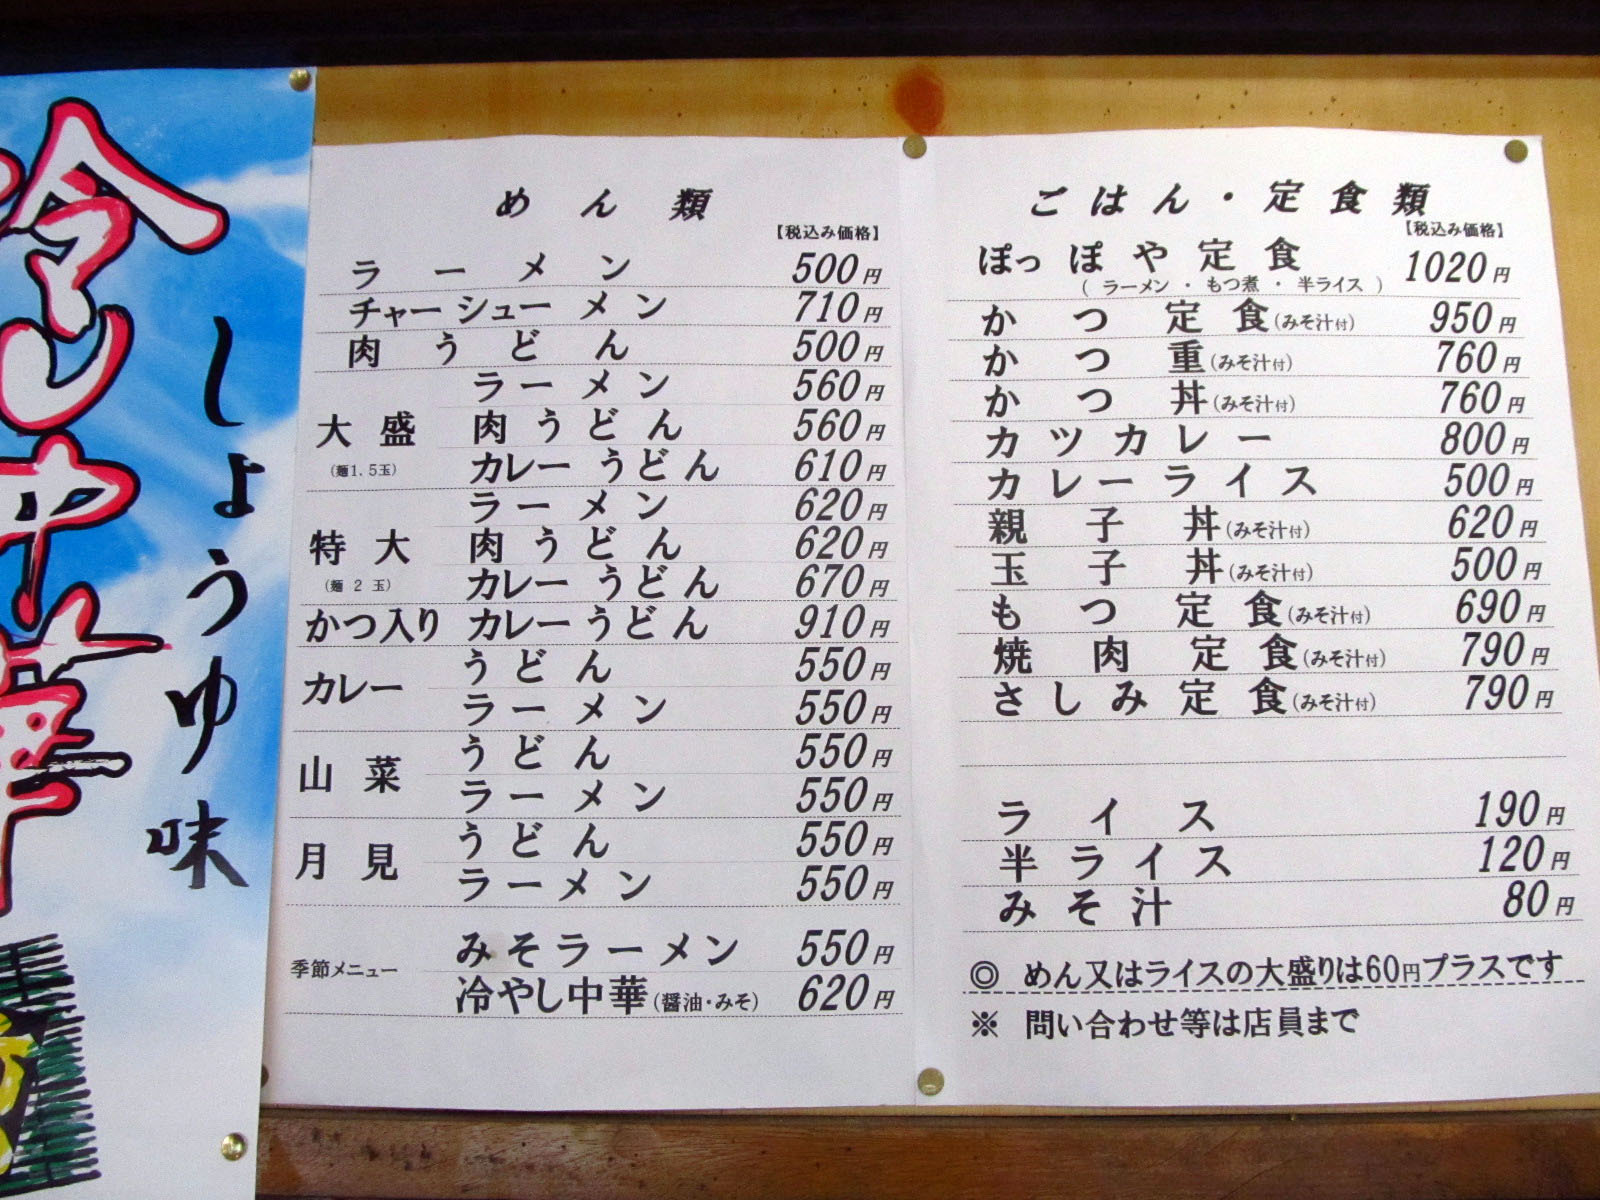 冷し中華
しょうゆ味
めん類
【税込み価格】
ラーメン 500円
チャーシューメン 710円
肉うどん 500円
大盛 (麺1.5玉)
ラーメン 560円
肉うどん 560円
カレーうどん 610円
特大 (麺2玉)
ラーメン 620円
肉うどん 620円
カレーうどん 670円
かつ入り カレーうどん 910円
カレー
うどん 550円
ラーメン 550円
山菜
うどん 550円
ラーメン 550円
月見
うどん 550円
ラーメン 550円
季節メニュー
みそラーメン 550円
冷やし中華(醤油・みそ) 620円
ごはん・定食類
【税込み価格】
ぽっぽや定食 1020円
(ラーメン・もつ煮・半ライス)
かつ定食(みそ汁付) 950円
かつ重(みそ汁付) 760円
かつ丼(みそ汁付) 760円
カツカレー 800円
カレーライス 500円
親子丼(みそ汁付) 620円
玉子丼(みそ汁付) 500円
もつ定食(みそ汁付) 690円
焼肉定食(みそ汁付) 790円
さしみ定食(みそ汁付) 790円
ライス 190円
半ライス 120円
みそ汁 80円
◎ めん又はライスの大盛りは60円プラスです
※ 問い合わせ等は店員まで